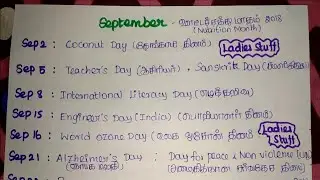 September - ஊட்டச்சத்து மாதம் 2018
(Nutrition Month)
Sep 2 : Coconut Day (தேங்காய் தினம்) Ladies Stuff
Sep 5 : Teacher's Day (ஆசிரியர்) , Sanskrit Day
Sep 8 : International Literacy Day (எழுத்தறிவு)
Sep 15 : Engineer's Day (India) (பொறியாளர் தினம்)
Sep 16 : World Ozone Day (உலக ஓசோன் தினம்) Ladies Stuff
Sep 21 : Alzheimer's Day ; Day for Peace & Non Violence